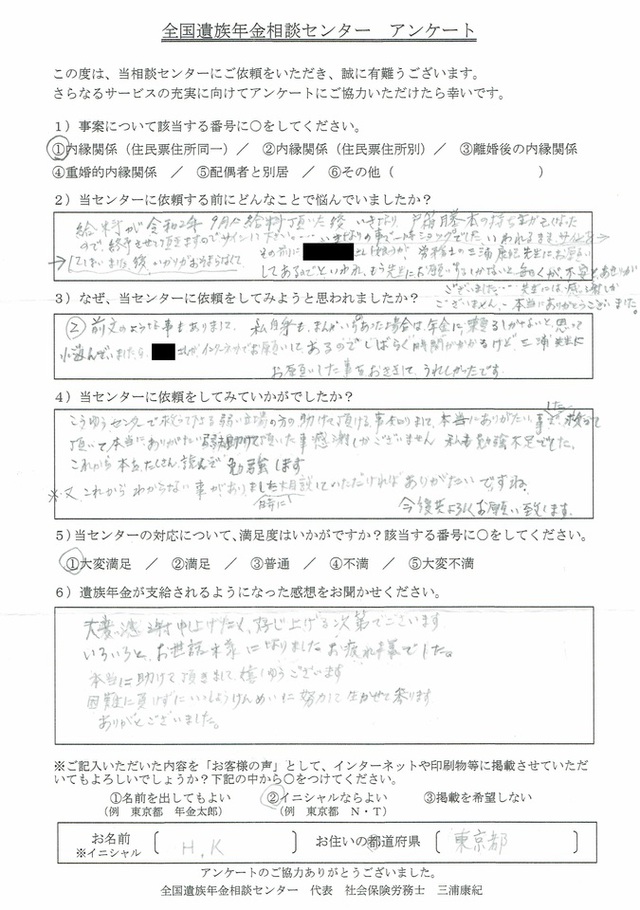 全国遺族年金相談センター アンケート
この度は、当相談センターにご依頼をいただき、誠に有難うございます。
さらなるサービスの充実に向けてアンケートにご協力いただけたら幸いです。
1）事案について該当する番号に○をしてください。
①内縁関係（住民票住所同一）／ ②内縁関係（住民票住所別）／ ③離婚後の内縁関係
④重婚的内縁関係 ／ ⑤配偶者と別居 ／ ⑥その他（ ）
2）当センターに依頼する前にどんなことで悩んでいましたか？
給料が令和2年9月
ので、終了させて頂きますのでサインに下さい
その前に
してあるのでといわれ、もう先生にお願いするしかないと
ございました
ございません。本当にありがとうございました。
3）なぜ、当センターに依頼をしてみようと思われましたか？
② 前文のような事もありまして、私自身も、まんがいちあった場合は、年金に頼るしかないと、思って
小悩んでいました
さんがインターネットでお願いしてあるのでしばらく時間がかかるけど三浦先生に
お願いした事をおききして、うれしかったです。
4）当センターに依頼をしてみていかがでしたか？
こうゆうセンターで救って下さる弱い立場の方の助けて頂ける事を知りまして、本当にありがたい事で、救って
頂いて本当にありがたい 助けて頂いた事感謝しかございません 私も勉強不足でした。
これから本をたくさん読んで勉強します
※又、これからわからない事がありました時に！相談していただければありがたいですね。
今後共よろしくお願い致します。
5）当センターの対応について、満足度はいかがですか？該当する番号に○をしてください。
①大変満足 ／ ②満足 ／ ③普通 ／ ④不満 ／ ⑤大変不満
6）遺族年金が支給されるようになった感想をお聞かせください。
大変感謝申し上げたく、存じ上げる次第でございます
いろいろと、お世話様になりましたお疲れ様でした。
本当に助けて頂きまして、嬉しゅうございます
困難に負けずにいっしょうけんめいに努力して生かせて参ります
ありがとございました。
※ご記入いただいた内容を「お客様の声」として、インターネットや印刷物等に掲載させていただ
いてもよろしいでしょうか？下記の中から○をつけてください。
①名前を出してもよい ②イニシャルならよい ③掲載を希望しない
（例 東京都 年金太郎） （例 東京都 N・T）
お名前 〔 H.K 〕 お住いの都道府県 〔 東京都 〕
※イニシャル
アンケートのご協力ありがとうございました。
全国遺族年金相談センター 代表 社会保険労務士 三浦康紀